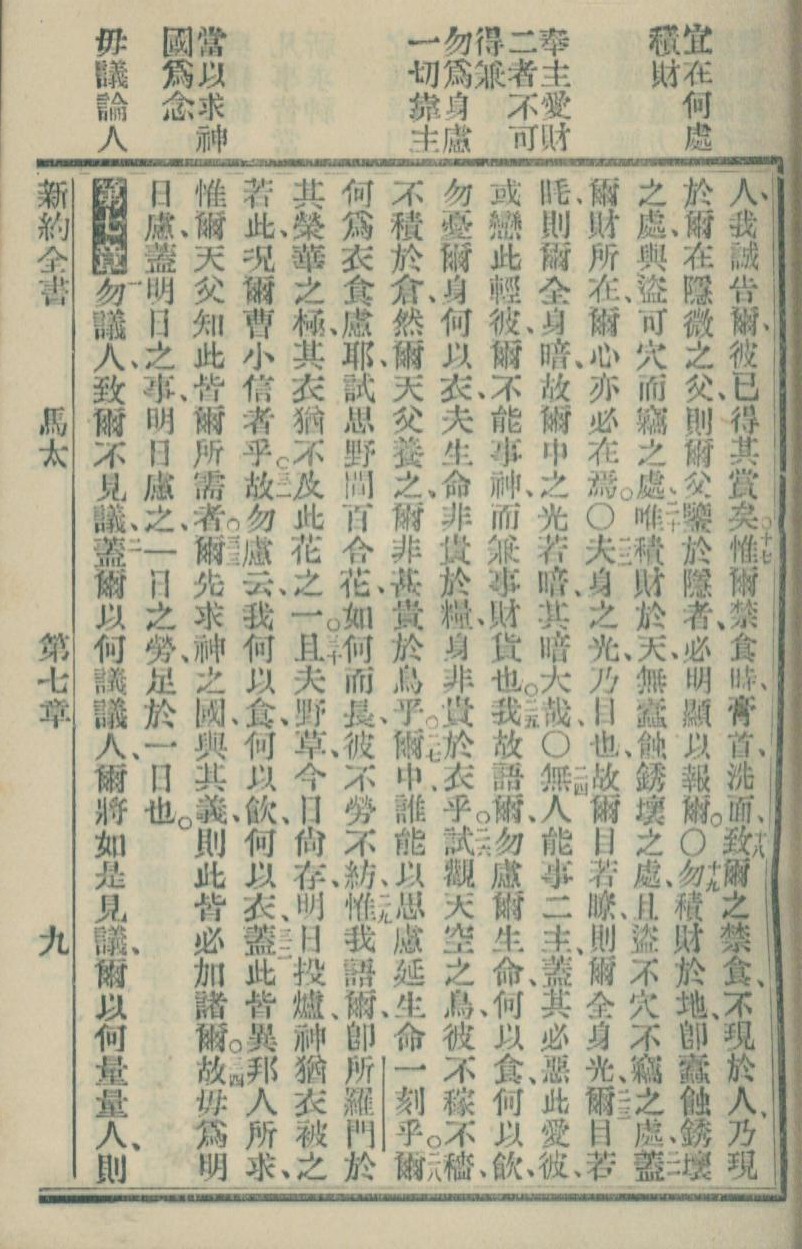 宜在何處
積財
奉主愛財
二者不可
得兼
勿為身慮
一切靠主
當以求神
國為念
毋議論人
人、我誠告爾、彼已得其賞矣、○十七惟爾禁食時、膏首、洗面、十八致爾之禁食、不現於人、乃現
於爾在隱微之父、則爾父鑒於隱者、必明顯以報爾。○十九勿積財於地、即蠹蝕銹壞
之處、與盜可穴而竊之處、二十唯積財於天、無蠹蝕銹壞之處、且盜不穴不竊之處、二一蓋
爾財所在、爾心亦必在焉。○二二夫身之光、乃目也、故爾目若瞭、則爾全身光、二三爾目若
眊、則爾全身暗、故爾中之光若暗、其暗大哉、○二四無人能事二主、蓋其必惡此愛彼、
或戀此輕彼、爾不能事神、而兼事財貨也。二五我故語爾、勿慮爾生命、何以食、何以飲、
勿憂爾身何以衣、夫生命非貴於糧、身非貴於衣乎。二六試觀天空之鳥、彼不稼不穡、
不積於倉、然爾天父養之、爾非甚貴於鳥乎。二七爾中誰能以思慮延生命一刻乎。二八爾
何為衣食慮耶、試思野間百合花、如何而長、彼不勞不紡、二九惟我語爾、即所羅門於
其榮華之極、其衣猶不及此花之一。三十且夫野草、今日尚存、明日投爐、神猶衣被之
若此、况爾曹小信者乎。三一故勿慮云、我何以食、何以飲、何以衣、三二蓋此皆異邦人所求、
惟爾天父知此皆爾所需者。三三爾先求神之國、與其義、則此皆必加諸爾。三四故毋為明
日慮、蓋明日之事、明日慮之、一日之勞、足於一日也。
第七章一勿議人、致爾不見議、二蓋爾以何議議人、爾將如是見議、爾以何量量人、則
新約全書 馬太 第七章 九